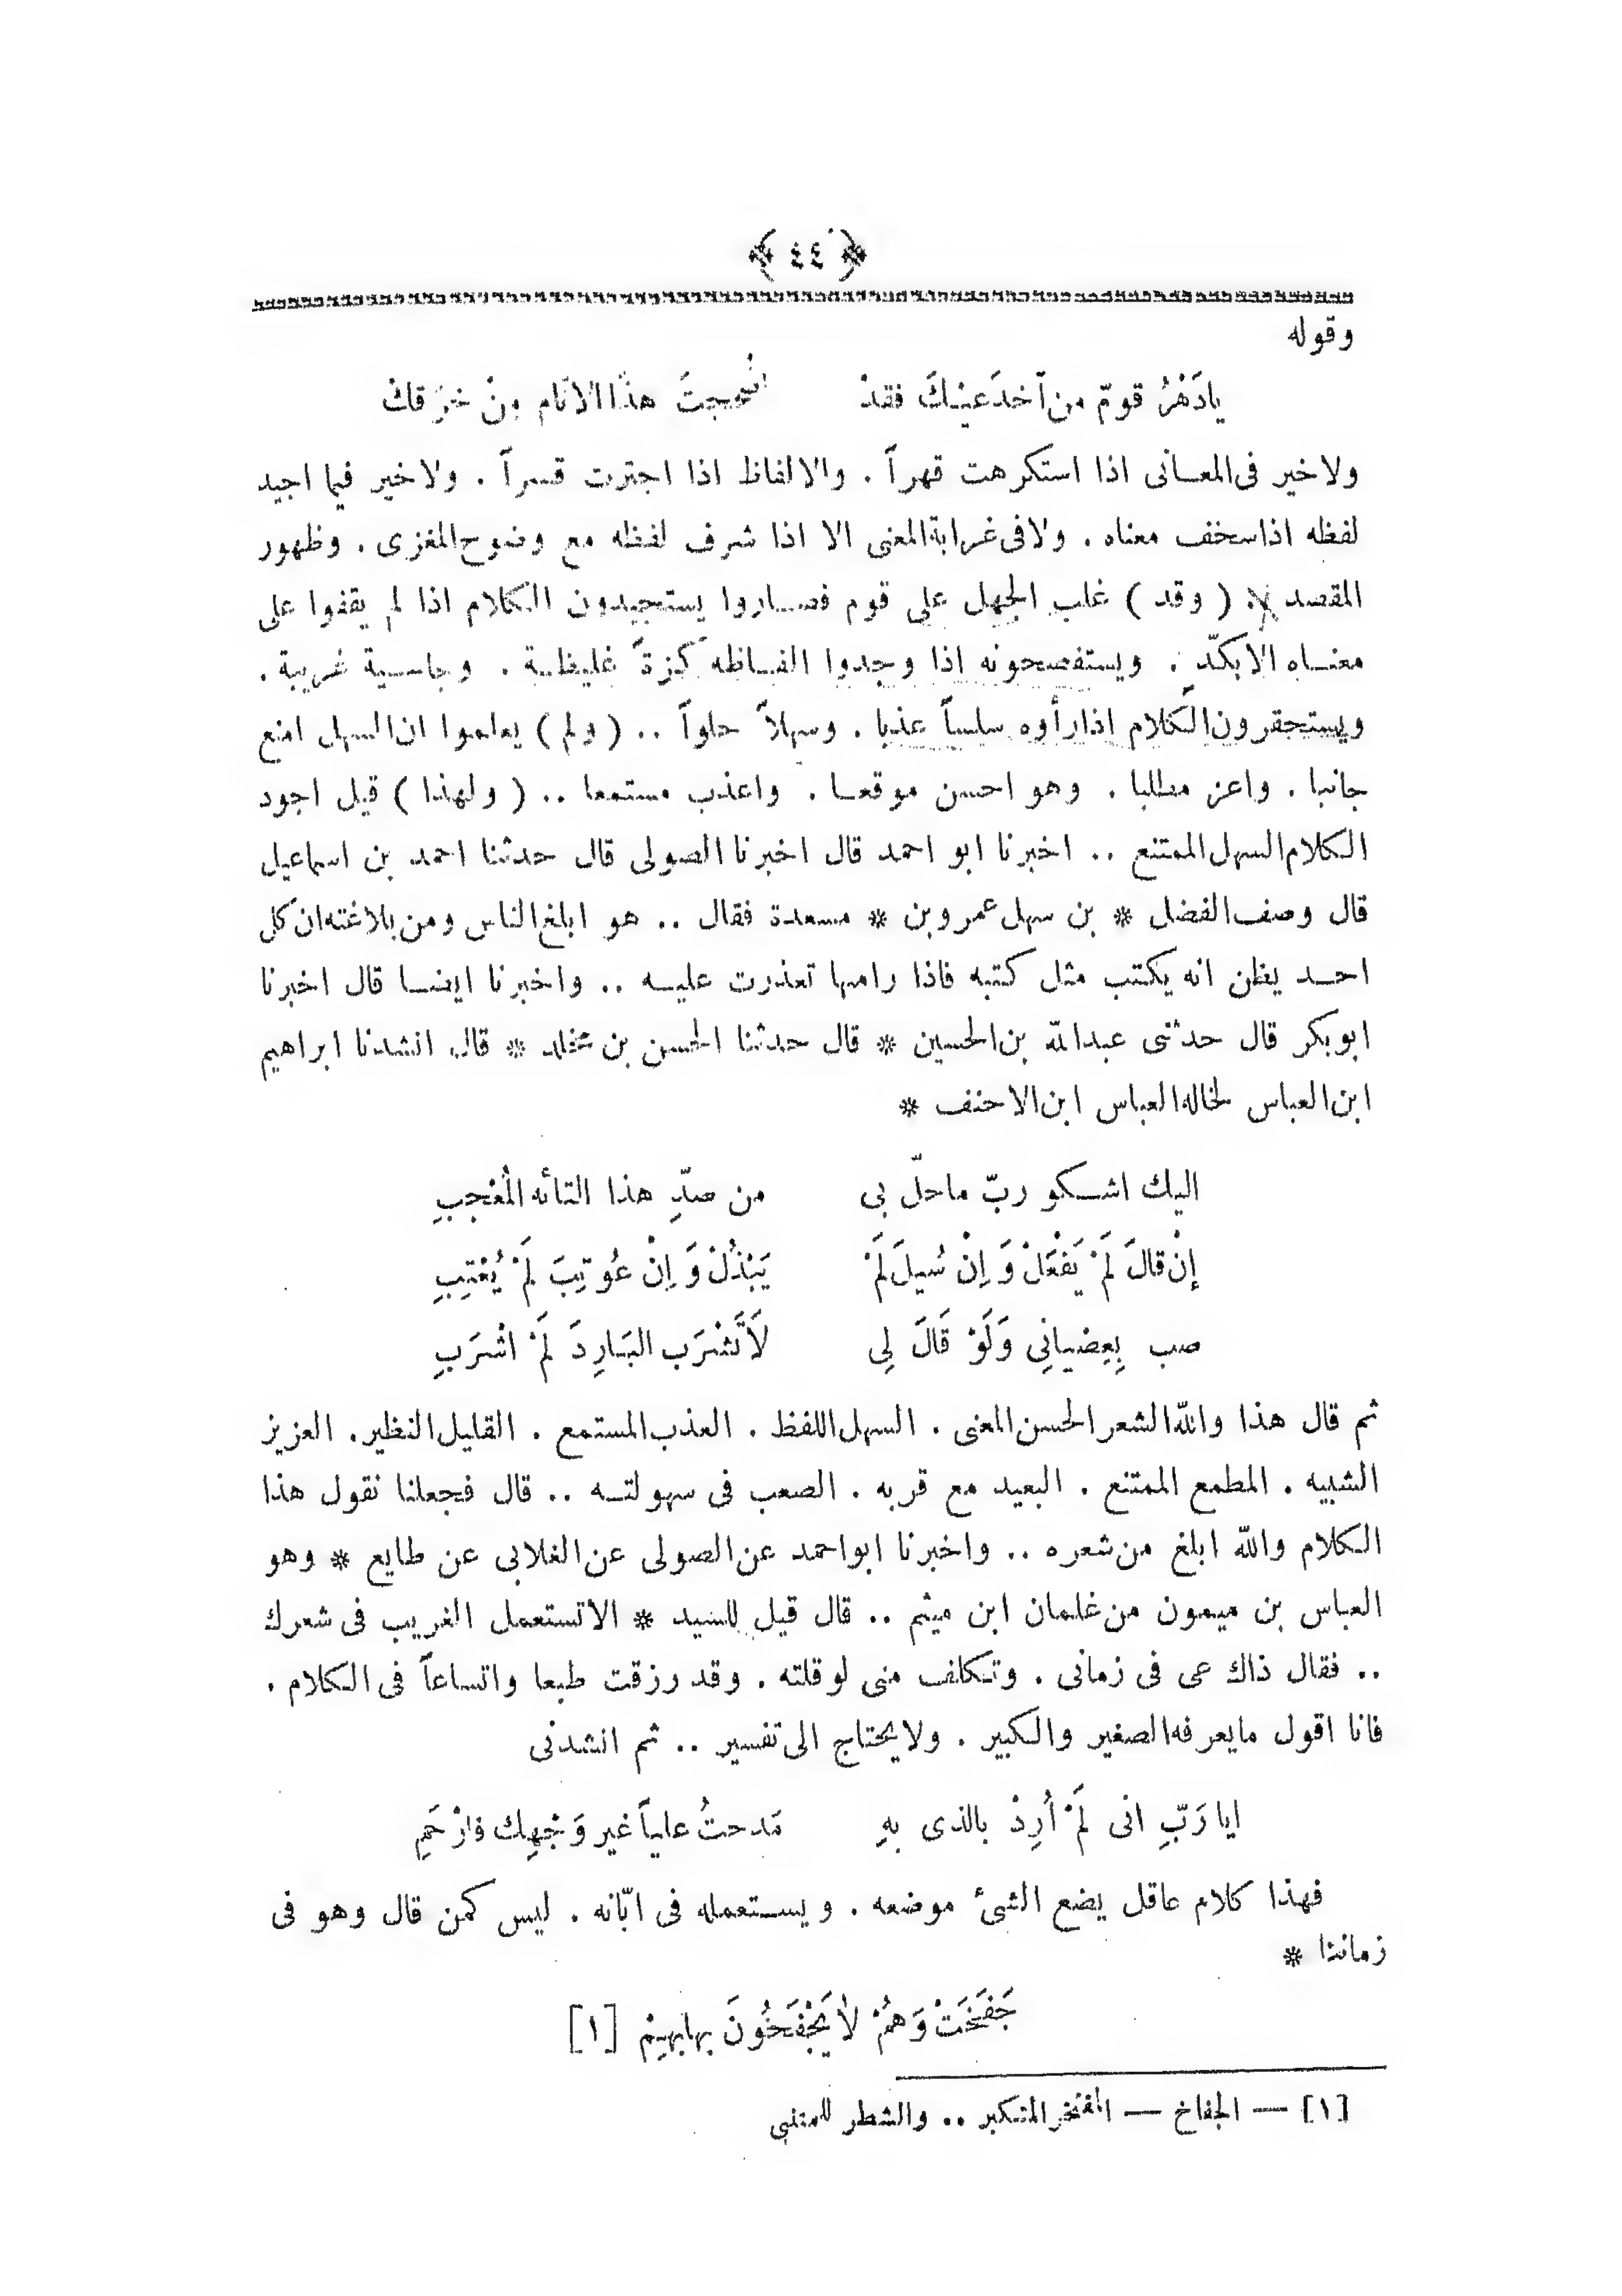 ﴿ ٤٤ ﴾
وقوله
يادَهْرُ قوّم من آخدَعيْكَ فقدْ اضججتَ هذا الانَام مِنْ خرَقكْ
ولاخير فى المعانى اذا استكرهت قهراً . والالفاظ اذا اجترت قسراً . ولاخير فيما اجيد
لفظه اذا سخف معناه . ولا فى غرابة المعنى الا اذا شرف لفظه مع وضوح المغزى . وظهور
المقصد ( وقد ) غلب الجهل على قوم فصاروا يستجيدون الكلام اذا لم يقفوا على
معناه الا بكدّ . ويستفصحونه اذا وجدوا الفاظه كزةً غليظة . وجاسية غريبة .
ويستحقرون الكلام اذا رأوه سلساً عذبا . وسهلاً حلواً .. ( ولم ) يعلموا ان السهل امنع
جانبا . واعز مطلبا . وهو احسن موقعا . واعذب مستمعا .. ( ولهذا ) قيل اجود
الكلام السهل الممتنع .. اخبرنا ابو احمد قال اخبرنا الصولى قال حدثنا احمد بن اسماعيل
قال وصف الفضل * بن سهل عمرو بن * مسعدة فقال .. هو ابلغ الناس ومن بلاغته ان كل
احد يظن انه يكتب مثل كتبه فاذا رامها تعذرت عليه .. واخبرنا ايضا قال اخبرنا
ابو بكر قال حدثنى عبدالله بن الحسين * قال حدثنا الحسن بن مخلد * قال انشدنا ابراهيم
ابن العباس لخاله العباس ابن الاحنف *
اليك اشكو ربّ ماحلّ بى من صدِّ هذا التائه المُعْجبِ
إنْ قالَ لَمْ يَفْعَلْ وَ اِنْ سُيلَ لَمْ يَبْذُلْ وَ اِنْ عُوتِبَ لَمْ يُعْتِبِ
صب بِعِصْيانِى وَلَوْ قَالَ لِى لاَ تَشْرَب البَارِدَ لَمْ اشْرَبِ
ثم قال هذا والله الشعر الحسن المعنى . السهل اللفظ . العذب المستمع . القليل النظير . العزيز
الشبيه . المطمع الممتنع . البعيد مع قربه . الصعب فى سهولته .. قال فجعلنا نقول هذا
الكلام والله ابلغ من شعره .. واخبرنا ابو احمد عن الصولى عن الغلابى عن طايع * وهو
العباس بن ميمون من غلمان ابن ميثم .. قال قيل للسيد * الا تستعمل الغريب فى شعرك
.. فقال ذاك عى فى زمانى . وتكلف منى لو قلته . وقد رزقت طبعا واتساعاً فى الكلام .
فانا اقول مايعرفه الصغير والكبير . ولا يحتاج الى تفسير .. ثم انشدنى
ايا رَبّ انى لَمْ أُرِدْ بالذى بهِ مَدحتُ علياً غير وَجْهِك فارْحَمِ
فهذا كلام عاقل يضع الشئ موضعه . ويستعمله فى ابّانه . ليس كمن قال وهو فى
زماننا *
جَفَخَتْ وَهُمْ لاٰ يَجْفَخُونَ بها بهِمْ [١]
[١] — الجفاخ — المفتخر المتكبر .. والشطر للمتنبى